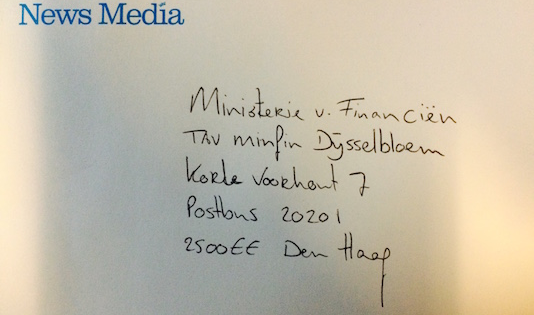 News Media
Ministerie v. Financiën
TAV minfin Dijsselbloem
Korte Voorhout 7
Postbus 20201
2500EE Den Haag